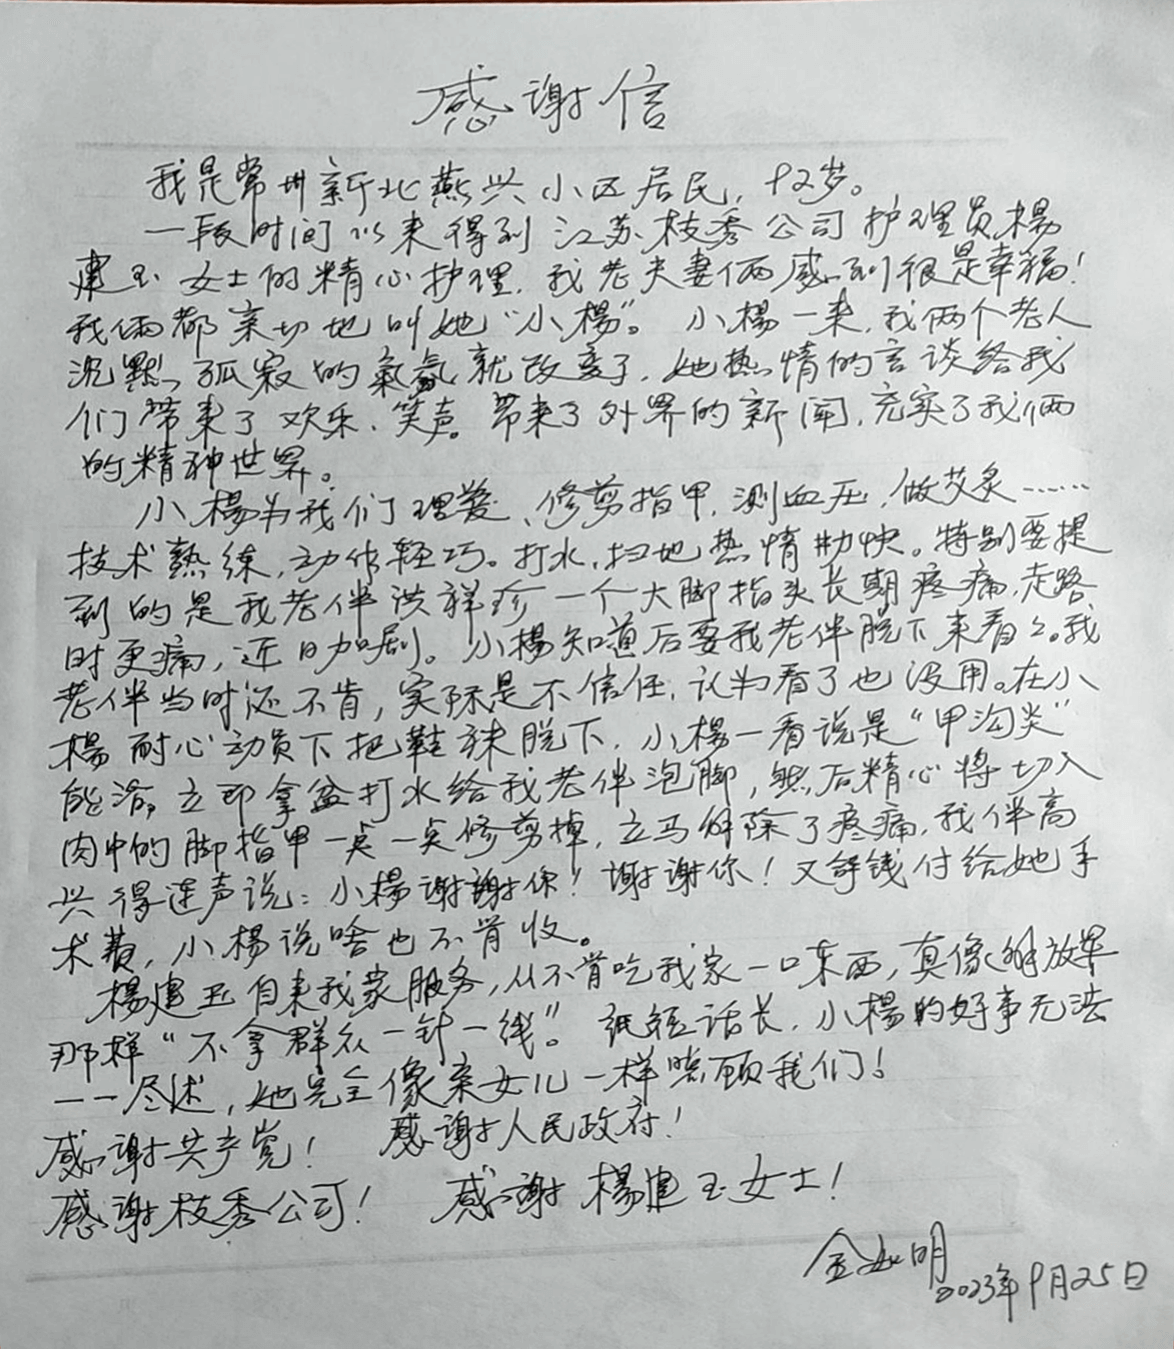 感谢信
我是常州新北燕兴小区居民，92岁。
一段时间以来得到江苏枝秀公司护理员楊
建玉女士的精心护理，我老夫妻俩感到很是幸福！
我俩都亲切地叫她“小楊”。小楊一来，我两个老人
沉默、孤寂的氣氛就改变了，她热情的言谈给我
们带来了欢乐、笑声。带来了外界的新闻，充实了我俩
的精神世界。
小楊为我们理发、修剪指甲，测血压，做艾灸……
技术熟练，动作轻巧。打水，扫地热情勤快。特别要提
到的是我老伴洪祥珍一个大脚指头长期疼痛，走路
时更痛，近日加剧。小楊知道后要我老伴脱下来看看。我
老伴当时还不肯，实际是不信任，认为看了也没用。在小
楊耐心动员下把鞋袜脱下，小楊一看说是“甲沟炎”
能治，立即拿盆打水给我老伴泡脚，然后精心将切入
肉中的脚指甲一点一点修剪掉，立马解除了疼痛，我伴高
兴得连声说：小楊谢谢你！谢谢你！又拿钱付给她手
术费，小楊说啥也不肯收。
楊建玉自来我家服务，从不肯吃我家一口东西，真像解放军
那样“不拿群众一针一线”。纸短话长，小楊的好事无法
一一尽述，她完全像亲女儿一样照顾我们！
感谢共产党！ 感谢人民政府！
感谢枝秀公司！ 感谢楊建玉女士！
金如明
2023年9月25日